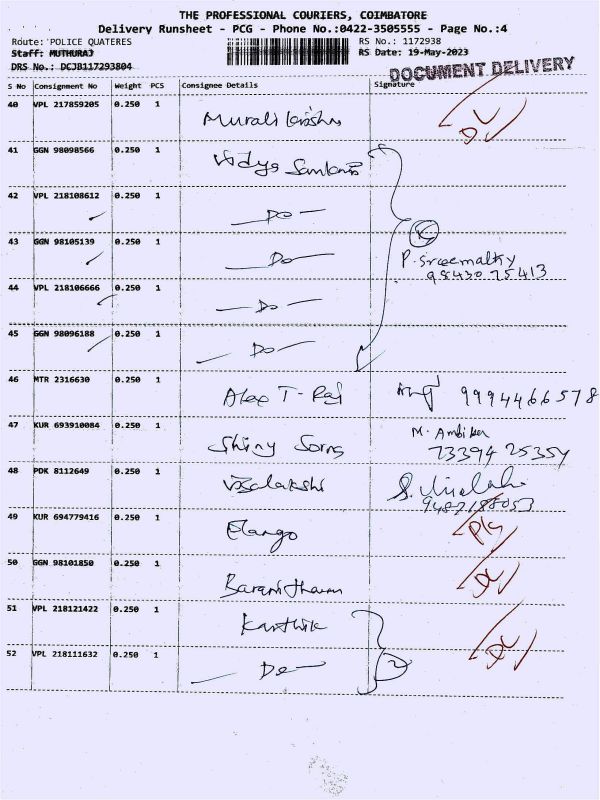 THE PROFESSIONAL COURIERS, COIMBATORE
Delivery Runsheet - PCG - Phone No.:0422-3505555 - Page No.:4
Route: POLICE QUATERES RS No.: 1172938
Staff: MUTHURAJ RS Date: 19-May-2023
DRS No.: DCJB117293804 DOCUMENT DELIVERY
S No Consignment No Weight PCS Consignee Details Signature
40 VPL 217859205 0.250 1 Murali Krishn
41 GGN 98098566 0.250 1 Vidya Sankar
42 VPL 218108612 0.250 1 — Do —
43 GGN 98105139 0.250 1 — Do — P. Sreemathy
98430 75413
44 VPL 218106666 0.250 1 — Do —
45 GGN 98096188 0.250 1 — Do —
46 MTR 2316630 0.250 1 Alex T. Raj 9994466578
47 KUR 693910084 0.250 1 Shiny M. Ambika
73394 25354
48 PDK 8112649 0.250 1 Visalakshi
9487188053
49 KUR 694779416 0.250 1 Elango
50 GGN 98101850 0.250 1 Baranitharan
51 VPL 218121422 0.250 1 Karthik
52 VPL 218111632 0.250 1 — Do — 2